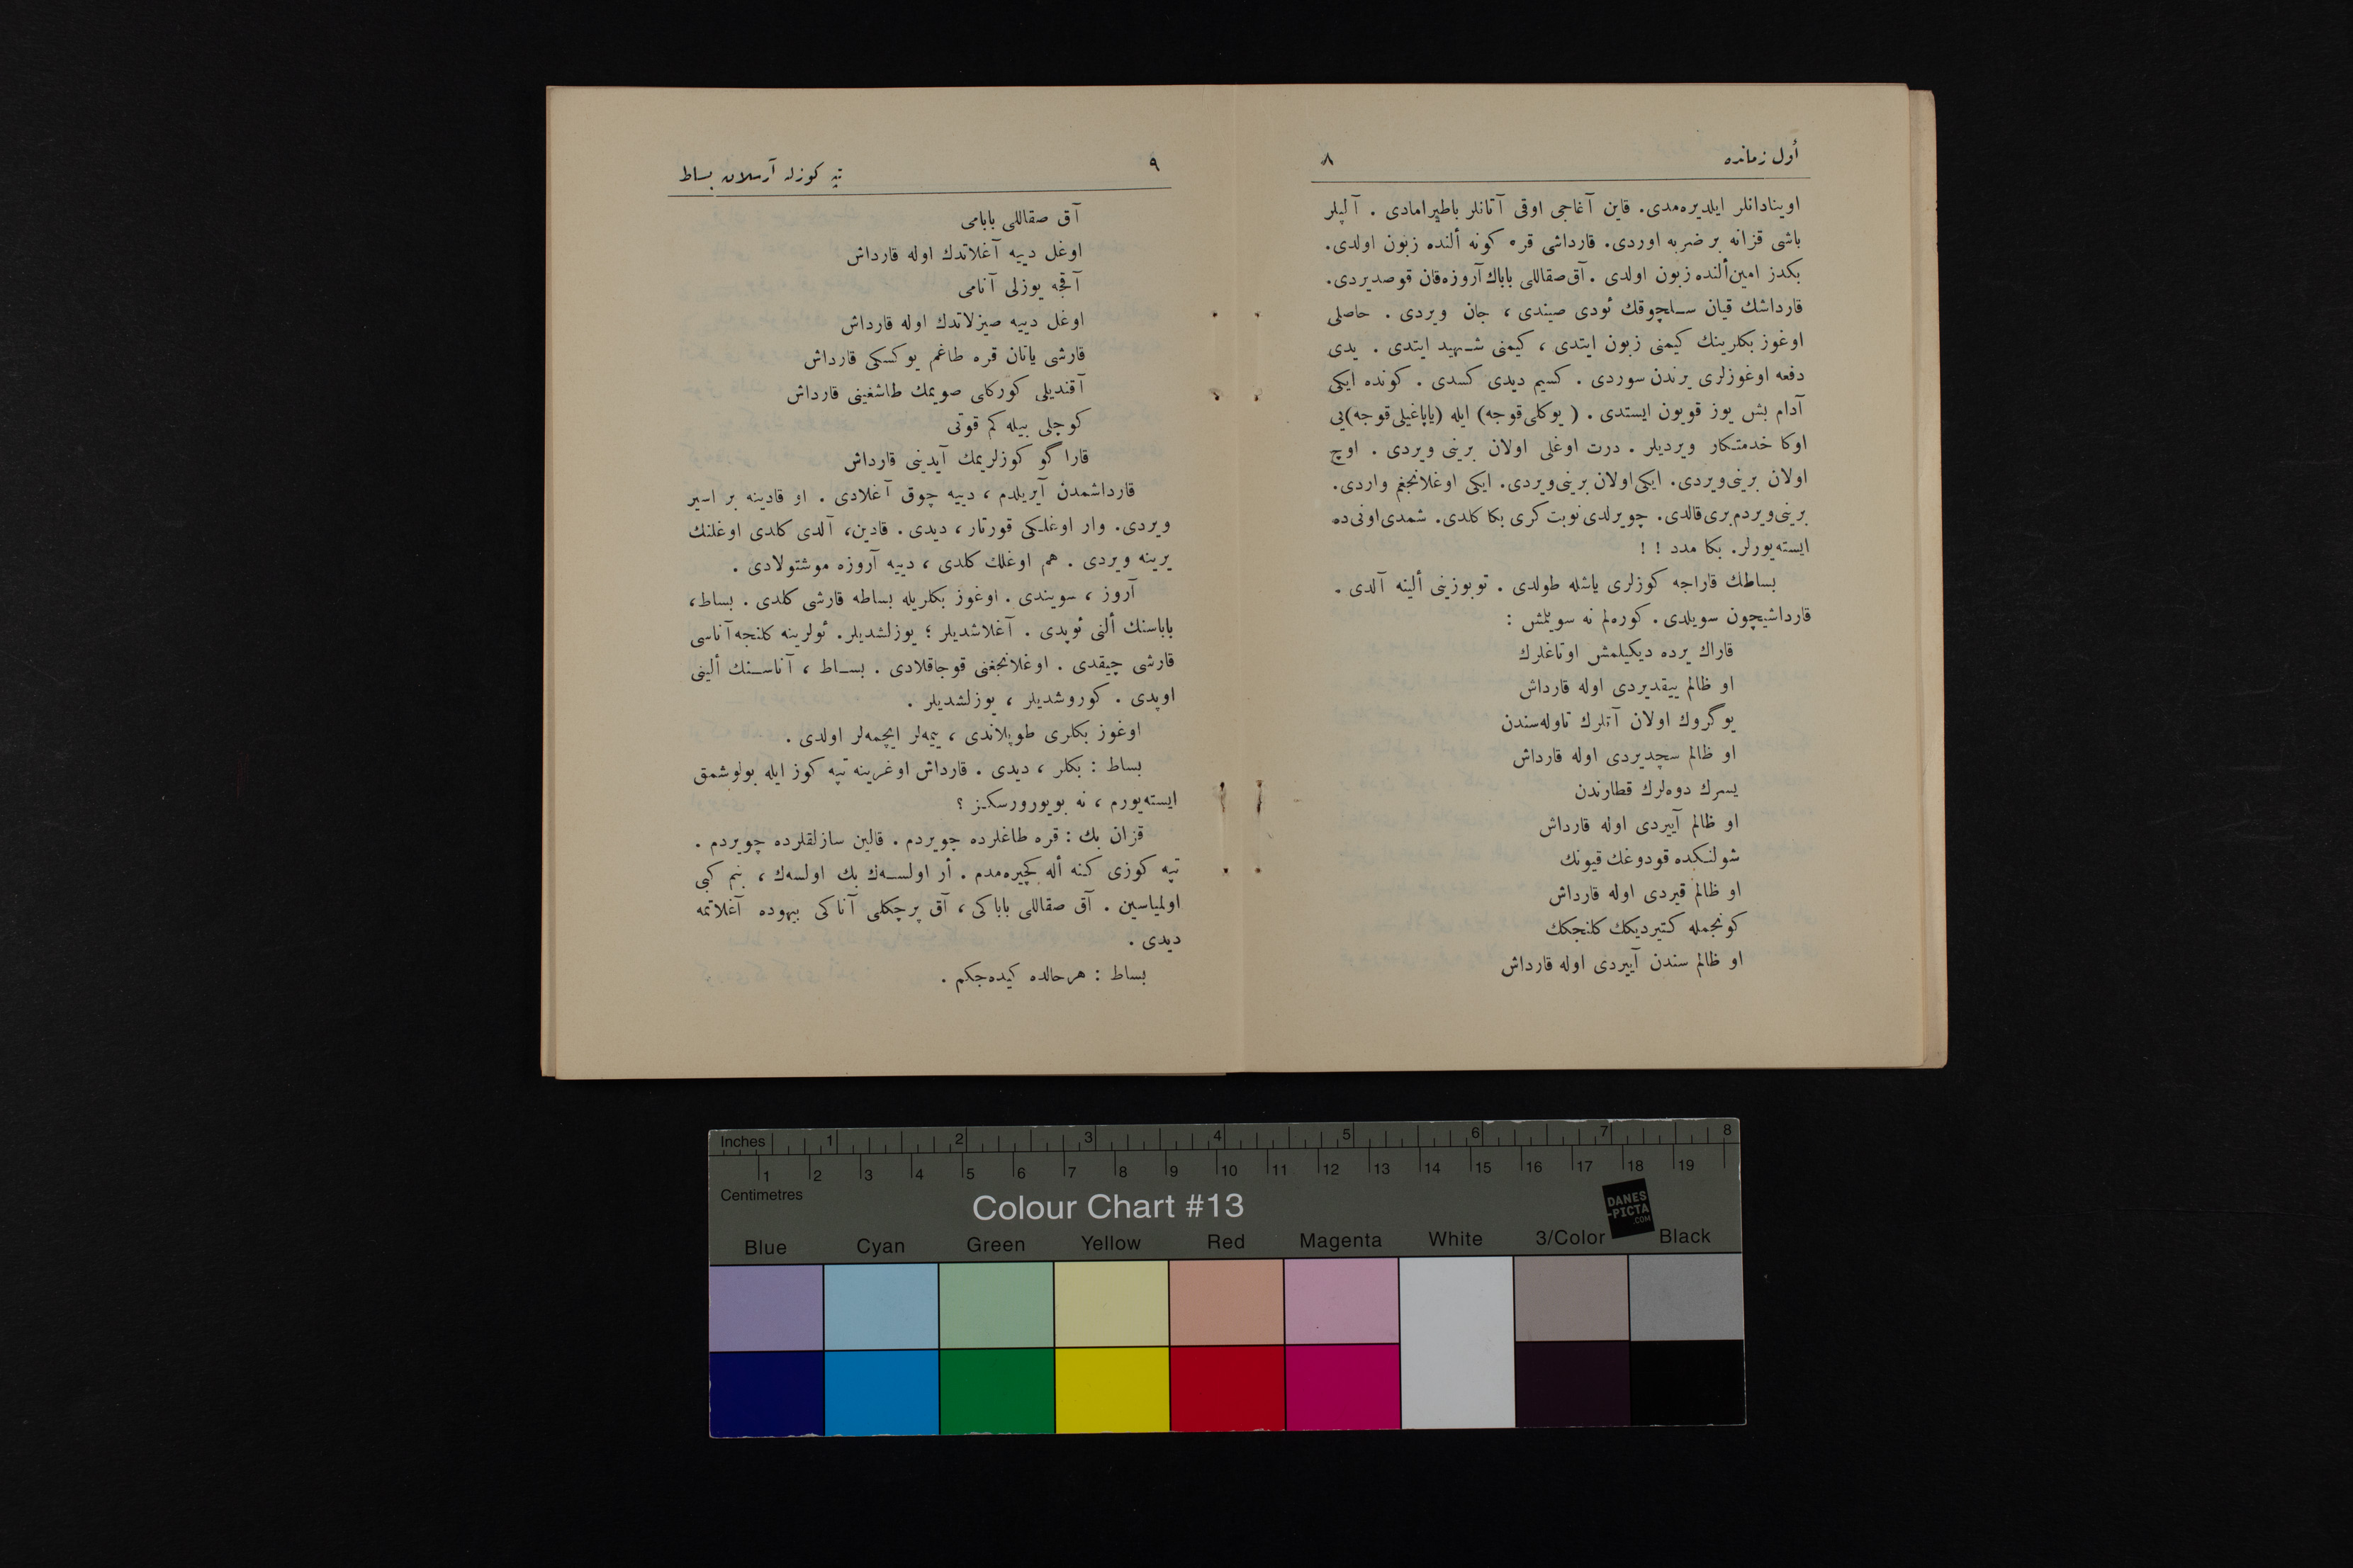 أول زمانده ٨
اوینادانلر ایلدیره‌مدی. قاین آغاجی اوقی آتانلر باطیرامادی . آلپلر
باشی قزانه بر ضربه اوردی. قارداشی قره کونه ألنده زبون اولدی.
بکدز امین ألنده زبون اولدی . آق صقاللی باباك آروزه قان قوصدیردی.
قارداشك قیان سلچوقك ئودی صیندی ، جان ویردی . حاصلی
اوغوز بکلرینك کیمنی زبون ایتدی ، کیمنی شهید ایتدی . یدی
دفعه اوغوزلری یرندن سوردی . کسیم دیدی کسدی . کونده ایکی
آدام بش یوز قویون ایستدی . ( یوکلی قوجه) ایله (یاپاغیلی قوجه)یی
اوکا خدمتکار ویردیلر . درت اوغلی اولان برینی ویردی . اوچ
اولان برینی ویردی. ایکی اولان برینی ویردی. ایکی اوغلانجغم واردی.
برینی ویردم بری قالدی. چویرلدی نوبت کری بکا کلدی. شمدی اونی ده
ایسته‌یورلر. بکا مدد ! !
بساطك قاراجه کوزلری یاشله طولدی . توبوزینی ألینه آلدی .
قارداشیچون سویلدی. کوره‌لم نه سویلمش :
قاراك یرده دیکیلمش اوتاغلرك
او ظالم ییقدیردی اوله قارداش
یوگروك اولان آتلرك تاوله‌سندن
او ظالم سچدیردی اوله قارداش
یسرك دوه‌لرك قطارندن
او ظالم آییردی اوله قارداش
شولنکده قودوغك قیونك
او ظالم قیردی اوله قارداش
کونجمله کتیردیکك کلنجکك
او ظالم سندن آییردی اوله قارداش
٩ تپه کوزله آرسلان بساط
آق صقاللی بابامی
اوغل دییه آغلاتدك اوله قارداش
آقجه یوزلی آنامی
اوغل دییه صیزلاتدك اوله قارداش
قارشی یاتان قره طاغم یوکسکی قارداش
آقندیلی کورکلی صویمك طاشغینی قارداش
کوجلی بیله کم قوتی
قارا گو کوزلریمك آیدینی قارداش
قارداشمدن آیریلدم ، دییه چوق آغلادی . او قادینه بر اسیر
ویردی. وار اوغلکی قورتار ، دیدی. قادین، آلدی کلدی اوغلنك
یرینه ویردی . هم اوغلك کلدی ، دییه آروزه موشتولادی .
آروز ، سویندی . اوغوز بکلریله بساطه قارشی کلدی . بساط،
باباسنك ألنی ئوپدی . آغلاشدیلر ؛ یوزلشدیلر. ئولرینه کلنجه آناسی
قارشی چیقدی . اوغلانجغنی قوجاقلادی . بساط ، آناسنك ألینی
اوپدی . کوروشدیلر ، یوزلشدیلر .
اوغوز بکلری طوپلاندی ، ییمه‌لر ایچمه‌لر اولدی .
بساط : بکلر ، دیدی . قارداش اوغرینه تپه کوز ایله بولوشمق
ایسته‌یورم ، نه بویورورسکز ؟
قزان بك : قره طاغلرده چویردم . قالین سازلقلرده چویردم .
تپه کوزی کنه أله کچیره‌مدم . أر اولسه‌ك بك اولسه‌ك ، بنم کبی
اولمیاسین . آق صقاللی باباکی ، آق پرچکلی آناکی بیهوده آغلاتمه
دیدی .
بساط : هر حالده کیده‌جکم .
Inches 1 2 3 4 5 6 7 8
1 2 3 4 5 6 7 8 9 10 11 12 13 14 15 16 17 18 19
Centimetres
Colour Chart #13
DANES
-PICTA
.COM
Blue Cyan Green Yellow Red Magenta White 3/Color Black